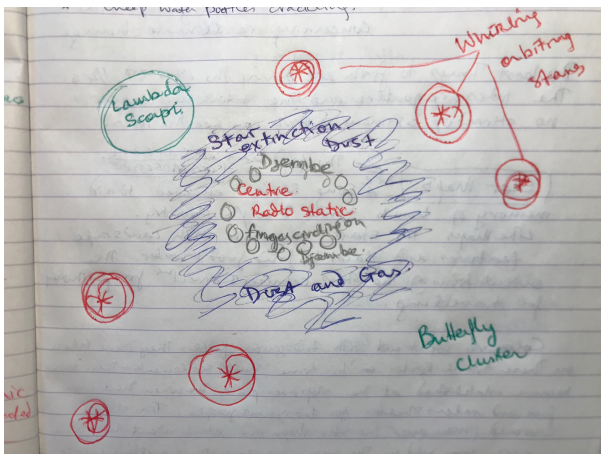 cheap water bottles crackling.
Whirling
orbiting
stars
Lambda
Scorpi.
Star
extinction
Dust
Djembe
Centre
Radio static
on
Djembe.
Dust and Gas.
Butterfly
cluster